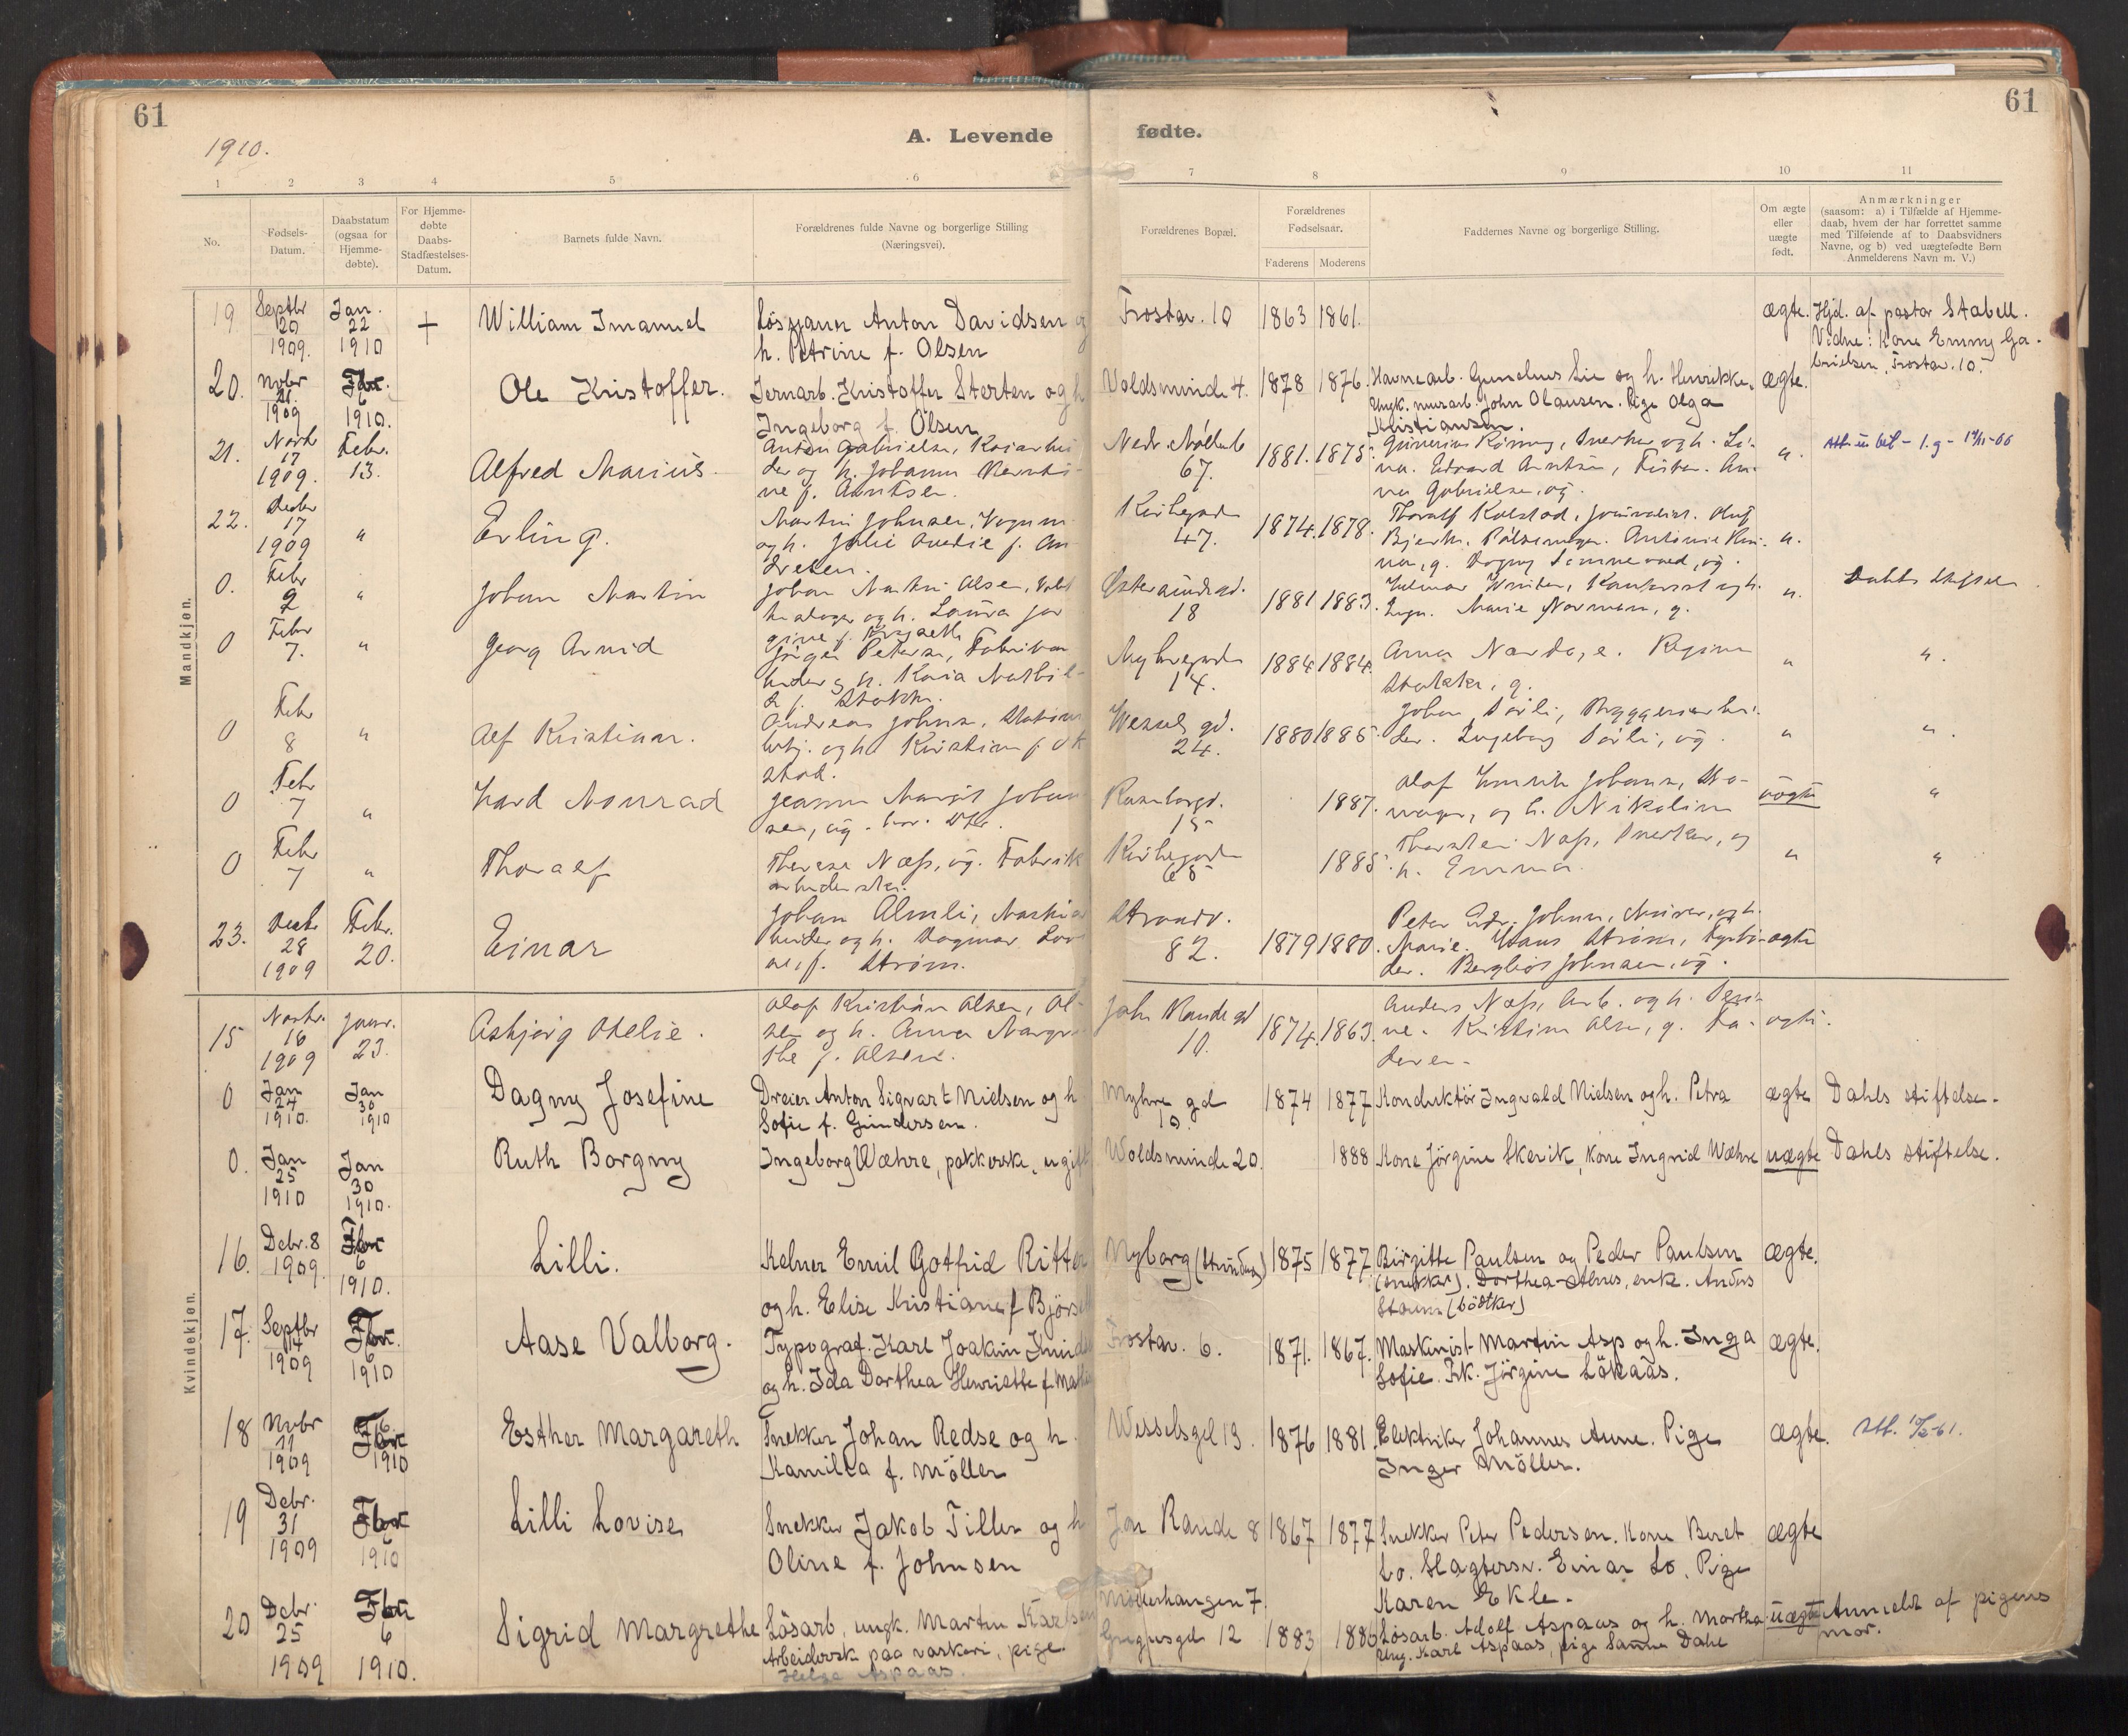 61
61
1910.
A. Levende fødte.
1 2 3 4 5 6 7 8 9 10 11
No.
Fødsels-
Datum.
Daabstatum
(ogsaa for
Hjemme-
døbte).
For Hjemme-
døbte
Daabs-
Stadfæstelses-
Datum.
Barnets fulde Navn.
Forældrenes fulde Navne og borgerlige Stilling
(Næringsvei).
Forældrenes Bopæl.
Forældrenes
Fødselsaar.
Faderens Moderens
Faddernes Navne og borgerlige Stilling.
Om ægte
eller
uægte
født.
Anmærkninger
(saasom: a) i Tilfælde af Hjemme-
daab, hvem der har forrettet samme
med Tilføiende af to Daabsvidners
Navne, og b) ved uægtefødte Børn
Anmelderens Navn m. V.)
Mandkjøn.
19 Septbr 20 1909. Jan. 22 1910 + William Imanuel Løsmann Anton Davidsen og
h. Petrine f. Olsen
Frostav. 10 1863 1861. ægte. Hjd. af pastor Stabell.
Vidne: Kone Emmy Ga-
brielsen, Frostav. 10.
20. Novbr 21. 1909 Fbr. 6 1910. Ole Kristoffer. Jernarb. Kristoffer Sterten og h
Ingeborg f. Olsen
Voldsminde 4. 1878 1876. Havnearb. Gunelius Lie og h. Henrikke.
Ungk. murarb. John Olausen. Pige Olga
Kristiansen.
ægte.
21. Novbr 17 1909 Febr. 13. Alfred Marius. Anton Gabrielsen, Kaiarbei
der og h. Johanna
ne f. Arntsen.
Nedr. Møllenb
67. 1881. 1875. Snekker og h. Li-
na. Edvard Arntsen, Fisker. An-
na Gabrielsen, ug.
"
22. Decbr 17 1909 " Erling. Martin Johnsen, Vognm.
og h. Julie f. An-
dresen.
Kirkegaden
47. 1874. 1878. Thoralf Kolstad, journalist. Oluf
Bjerk. Pølsemager. Antonie
g. Dagny ug.
"
0. Febr 2 " Johan Martin Johan Martin Olsen,
og h. Laura Jør
gine f.
Østersundsgd.
18 1881 1883. Hilmar Kontorist og h.
Marie Normann, g. " Dahls Stiftelse
0 Febr 7. " Georg Arvid Jørgen Petersen, Fabrikar
beider og h. Maria Mathil-
de f. Stokke.
Myhregaden
14. 1884 1884. Anna g. Regine
Stokke, g. " "
0 Febr 8 " Alf Kristian. Andreas Johnsen, Stations
betj. og h. Kristine f. Ok
stad.
Wessels gd.
24. 1880 1885. Johan Dørli, Bryggeriarbei-
der. Ingeborg Dørli, ug. " "
0 Febr 7 " Hard Monrad Margit Johan
sen, ug.
Rosenborgd.
15 1887. Olaf Henrik Johansen, Sko-
mager, og h. Nikoline uægte "
0 Febr 7 " Thoralf Therese Næss, ug. Fabrik
arbeiderske.
Kirkegaden
65 1885. Thorstein Næss, Snekker, og
h. Emma. " "
23. Decbr 28 1909 Febr. 20. Einar Johan Almli, Maskinar
beider og h. Dagmar Lov
ise, f. Strøm.
Strandv.
82. 1879 1880. Peter Edv. Johnsen, Murer, og h.
Marie. Hans Strøm,
der. Bergliot Johnsen, ug. ægte
Kvindekjøn.
15 Novbr. 16 1909 Janr. 23. Asbjørg Otelie. Olaf Kristian Olsen,
og h. Anna Margre
the f. Olsen.
John Rande gd
10. 1874. 1863. Anders Næss, Arb. og h.
ne. Kristine Olsen, g. Fa-
deren. ægte.
0 Jan 24 1910. Jan 30 1910 Dagny Josefine Dreier Anton Sigvart Nielsen og h
Sofie f. Gundersen.
Myhre gd
10 1874 1877 Konduktør Ingvald Nielsen og h. Petra ægte Dahls stiftelse.
0. Jan 25 1910 Jan 30 1910. Ruth Borgny Ingeborg Wæhre, pakkerske, ugift
Voldsminde 20. 1888 Kone Jørgine Skevik, Kone Ingrid Wæhre uægte Dahls stiftelse.
16. Debr. 8 1909. Fbr 6 1910. Lilli. Kelner Emil Gotfrid Ritter
og h. Elise Kristiane f Bjørseth
Nyborg (Strinden) 1875 1877 Birgitte Paulsen og Peder Paulsen
(snekker). Dorthea Alnes, enke. Anders
Staum (bødtker)
ægte.
17. Septbr 14 1909 Fbr. 6 1910 Aase Valborg. Typograf. Karl Joakim
og h. Ida Dorthea Henriette f.
Frostav. 6. 1871. 1867. Maskinist Martin Asp og h. Inga
Sofie. Frk. Jörgine Lökaas. ægte.
18 Nvbr 11 1909 Fbr 6. 1910 Esther Margareth Snekker Johan Redse og h.
Kamilla f. Möller
Wesselsgd 13 1876 1881. Elektriker Johannes Aune. Pige
Inger Möller. ægte.
19 Debr. 31 1909 Fbr 6 1910 Lilli Lovise Snekker Jakob Tiller og h
Oline f. Johnsen
Jon Rande 8 1867 1877 Snekker Peter Pedersen. Kone Beret
Lo. Slagtersv. Einar Lo. Pige
Karen Ekle. ægte
20 Debr. 25 1909 Fbr 6 1910. Sigrid Margrethe Løsarb, ungk. Martin Karlsen
Arbeidersk paa vaskeri, pige
Helga Aspaas.
Möllerhaugen 7.
Gregusgd. 12 1883 1886 Løsarb. Adolf Aspaas og h. Martha.
Ung. Karl Aspaas, pige Sanna Dahl
uægte Anmeldt af pigens
mor.